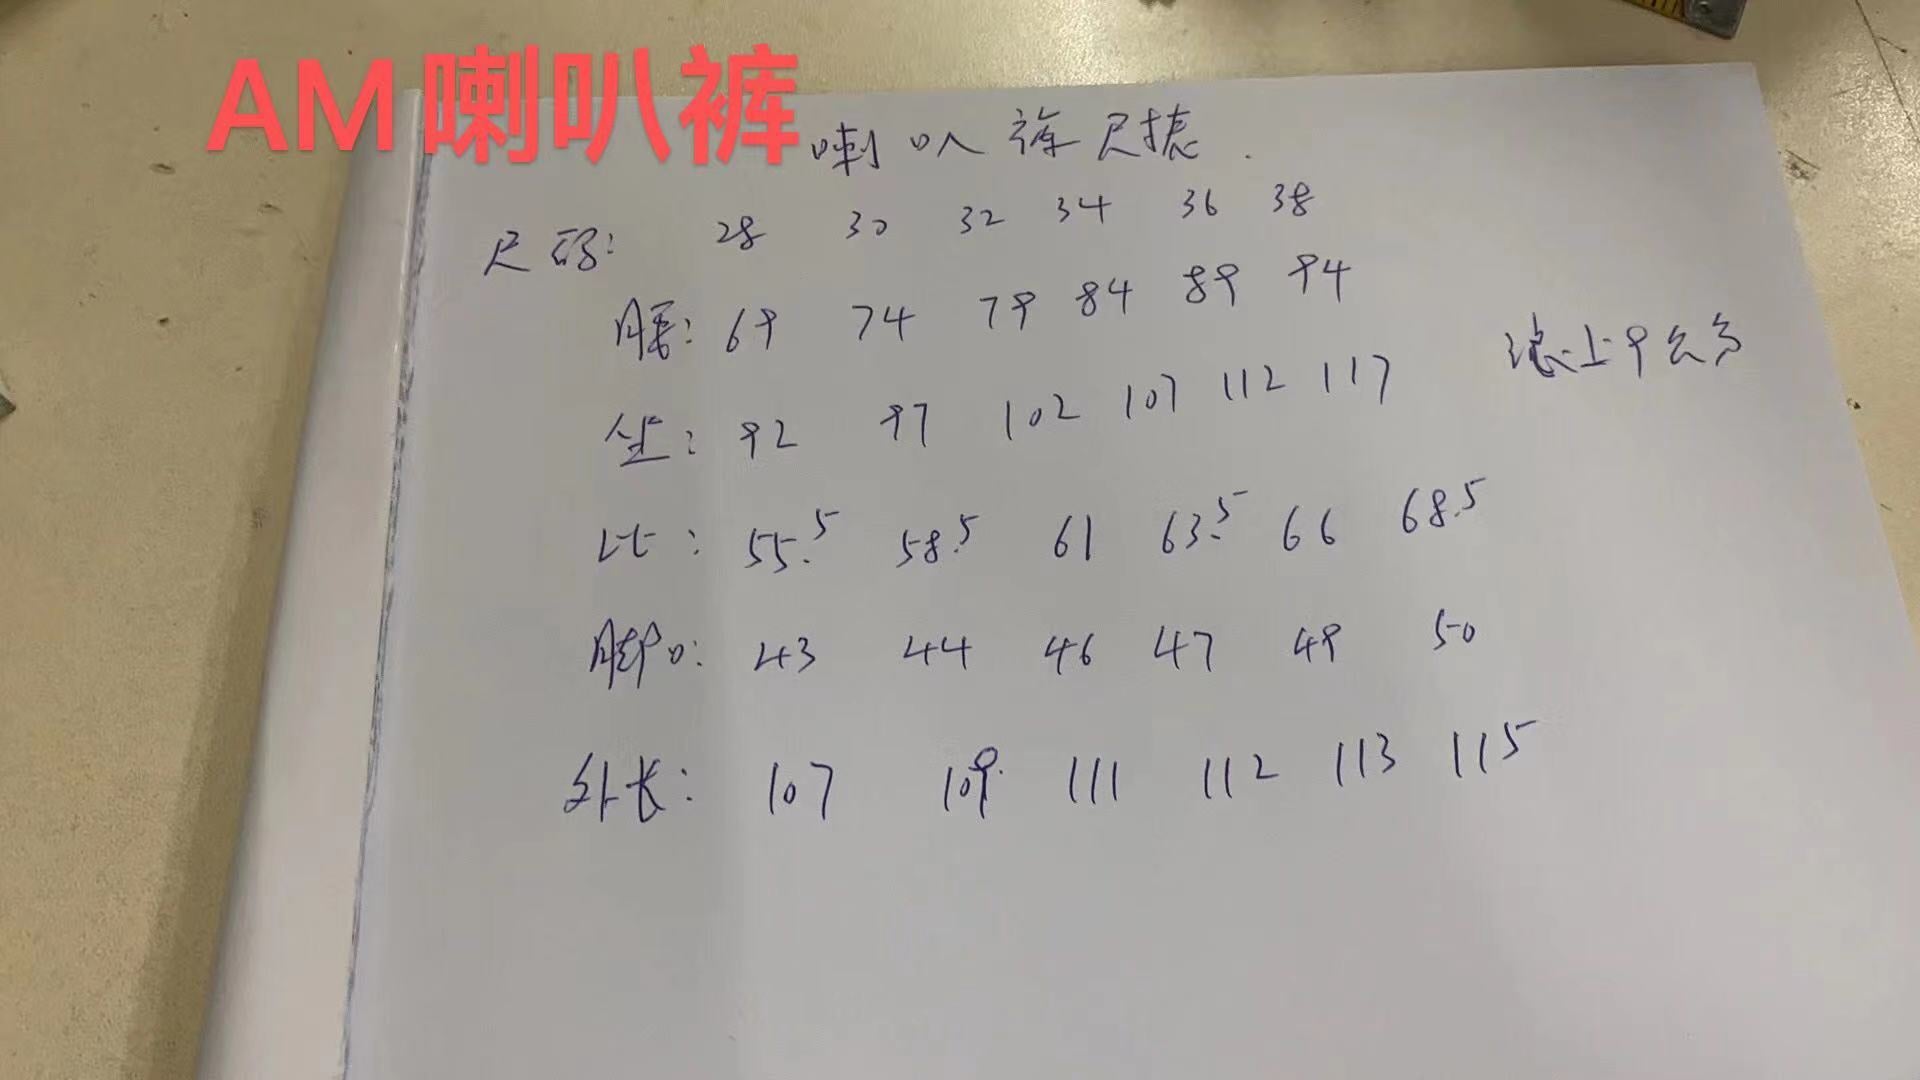 AM喇叭裤
喇叭裤尺表
尺码: 28 30 32 34 36 38
腰: 69 74 79 84 89 94
坐: 92 97 102 107 112 117 浪上9公分
比: 55.5 58.5 61 63.5 66 68.5
脚口: 43 44 46 47 49 50
外长: 107 109 111 112 113 115